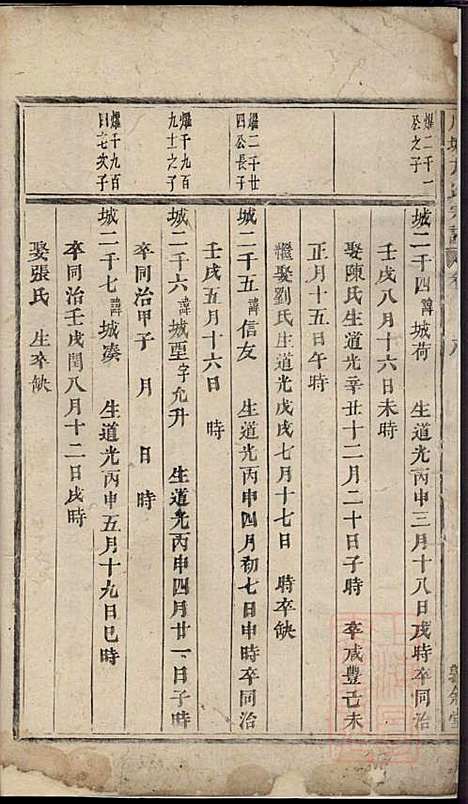 燿二千一
公之子
城二千四 諱城荷 生道光丙申三月十八日戌時卒同治
壬戌八月十六日未時
娶陳氏生道光辛丑十二月二十日子時 卒咸豐己未
正月十五日午時
繼娶劉氏生道光戊戌七月十七日 時卒缺
燿二千廿
四公長子
城二千五 諱信友 生道光丙申四月初七日申時卒同治
壬戌五月十六日 時
燿千九百
九十之子
城二千六 諱城堊字允升 生道光丙申四月廿一日子時
卒同治甲子 月 日 時
燿千九百
日七次子
城二千七 諱城湊 生道光丙申五月十九日巳時
卒同治壬戌閏八月十二日戌時
娶張氏 生卒缺